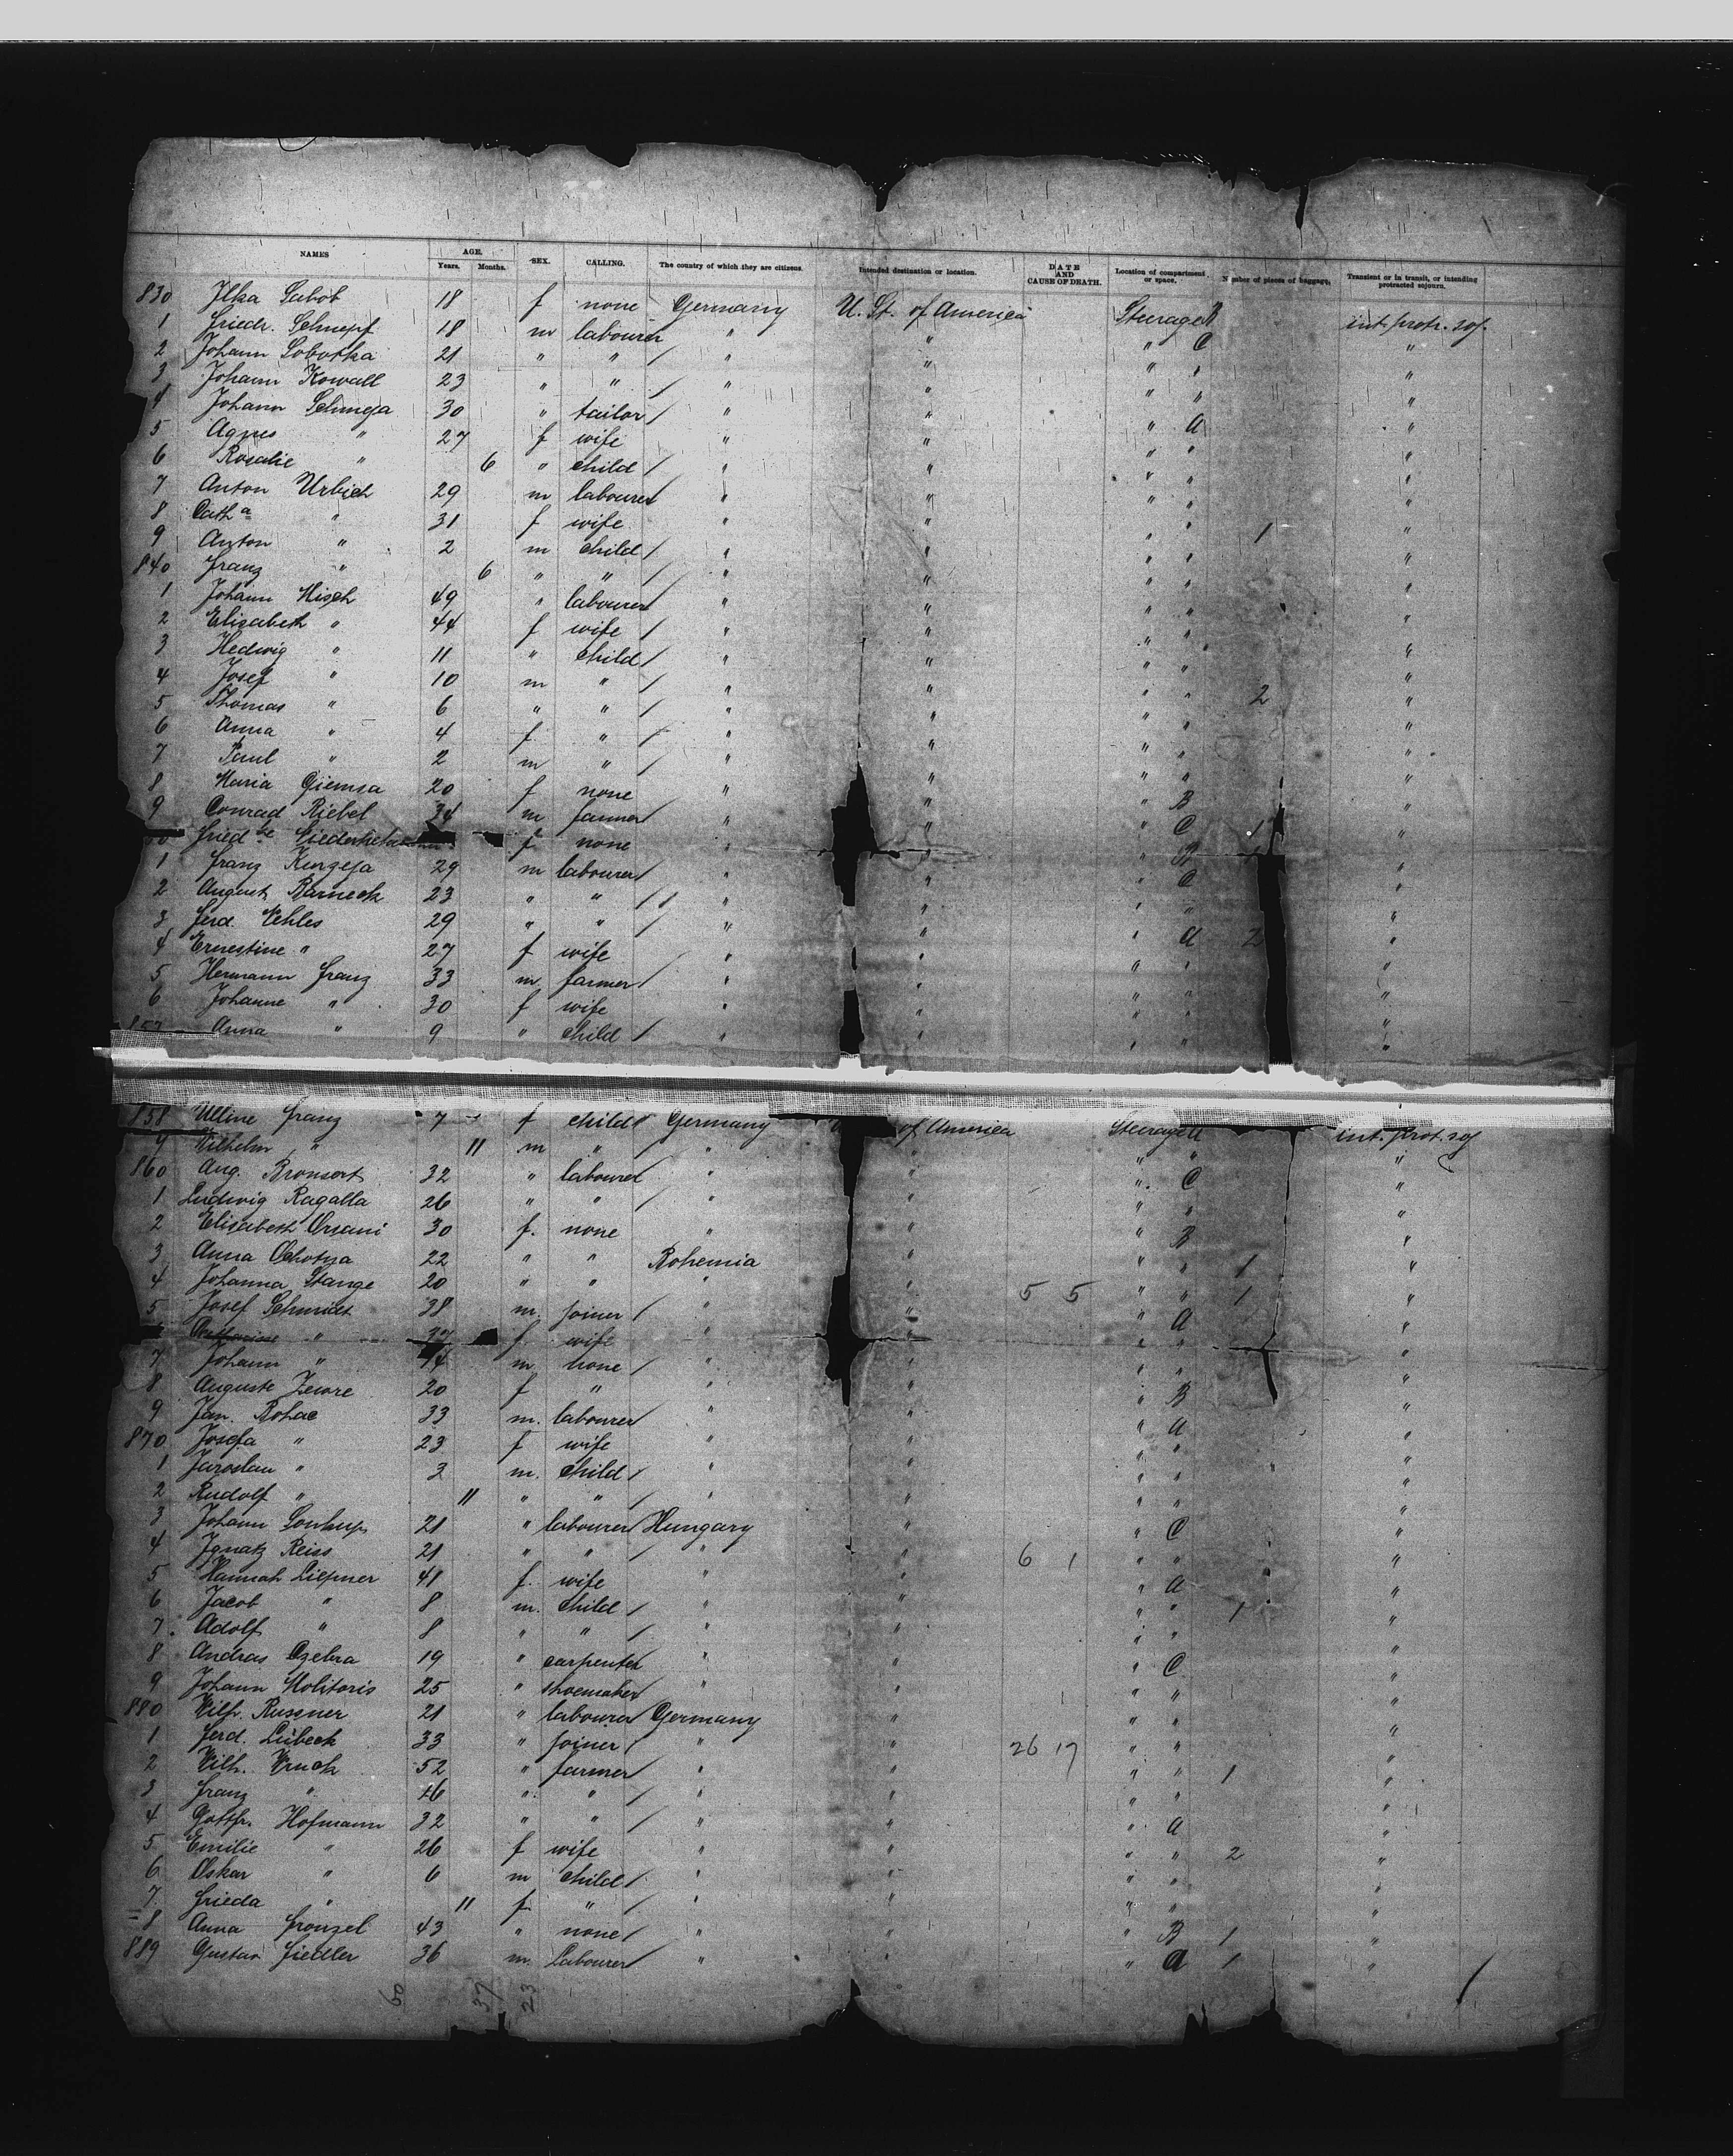 NAMES AGE. Years. Months. SEX. CALLING. The country of which they are citizens. Intended destination or location. DATE AND CAUSE OF DEATH. Location of compartment or space. Number of pieces of baggage. Transient or in transit, or intending protracted sojourn.
830 Ilka Sabob 18 f none Germany U. St. of America Steerage B int. protr. soj.
1 Friedr. Schnepf 18 m labourer " " " C "
2 Johann Sobotka 21 " " / " " " " "
3 Johann Kowall 23 " " / " " " " "
4 Johann Schmeja 30 " tailor / " " " A "
5 Agnes " 27 f wife " " " " "
6 Rosalie " 6 " child / " " " " "
7 Anton Urbich 29 m labourer " " " " "
8 Cath a " 31 f wife " " " " 1 "
9 Anton " 2 m child / " " " " "
840 Franz " 6 " " / " " " " "
1 Johann Misch 49 " labourer " " " " "
2 Elisabeth " 44 f wife / " " " " "
3 Hedwig " 11 " child / " " " " "
4 Josef " 10 m " / " " " " 2 "
5 Thomas " 6 " " / " " " " "
6 Anna " 4 f " / " " " " "
7 Paul " 2 m " / " " " " "
8 Maria Giemsa 20 f none " " " B "
9 Conrad Riebel 34 m farmer " " " C 1 "
f none " " " B
1 Franz Kurzeja 29 m labourer / " " " C "
2 August Barneck 23 " " / " " " " "
3 Ferd. Nehles 29 " " / " " " A 2 "
4 Ernestine " 27 f wife " " " " "
5 Hermann Franz 33 m farmer / " " " " "
6 Johanne " 30 f wife " " " " "
857 Anna " 9 " child / " " " " "
858 Franz 7 f child Germany of America Steerage A int. prot. soj
9 Wilhelm " 11 m " / " " " " "
860 Aug. Bronsert 32 " labourer " " " C "
1 Ludwig Ragalla 26 " " / " " " " "
2 Elisabeth Orsani 30 f. none " " " B "
3 Anna 22 " " Bohemia " " " 1 "
4 Johanna Stange 20 " " " " 5 5 " " 1 "
5 Josef Schmidt 38 m. joiner / " " " A "
" 37 f. wife " " " " "
7 Johann " 14 m none / " " " " "
8 Auguste 20 f " " " " B "
9 Jan. Bohac 33 m. labourer " " " A "
870 Josefa " 23 f wife " " " " "
1 Jaroslau " 3 m. child / " " " " "
2 Rudolf " 11 " " / " " " " "
3 Johann Soukup 21 " labourer Hungary " " C "
4 Ignatz Reiss 21 " " / " " 6 1 " " "
5 Hannah Liepner 41 f. wife " " " A "
6 Jacob " 8 m. child / " " " " 1 "
7 Adolf " 8 " " / " " " " "
8 Andras Czebra 19 " carpenter " " " C "
9 Johann Molitoris 25 " shoemaker " " " " "
880 Wilh. Russner 21 " labourer Germany " " " "
1 Ferd. Lübeck 33 " joiner / " " 26 17 " " "
2 Wilh. Kruck 52 " farmer " " " " 1 "
3 Franz " 16 " " / " " " " "
4 Gottfr. Hofmann 32 " " / " " " A "
5 Emilie " 26 f wife " " " " 2 "
6 Oskar " 6 m child / " " " " "
7 Frieda " 11 f " / " " " " "
8 Anna Fronzel 43 " none / " " " B 1 "
889 Gustav Fiedler 36 m. labourer " " " A 1 "
60 37 23